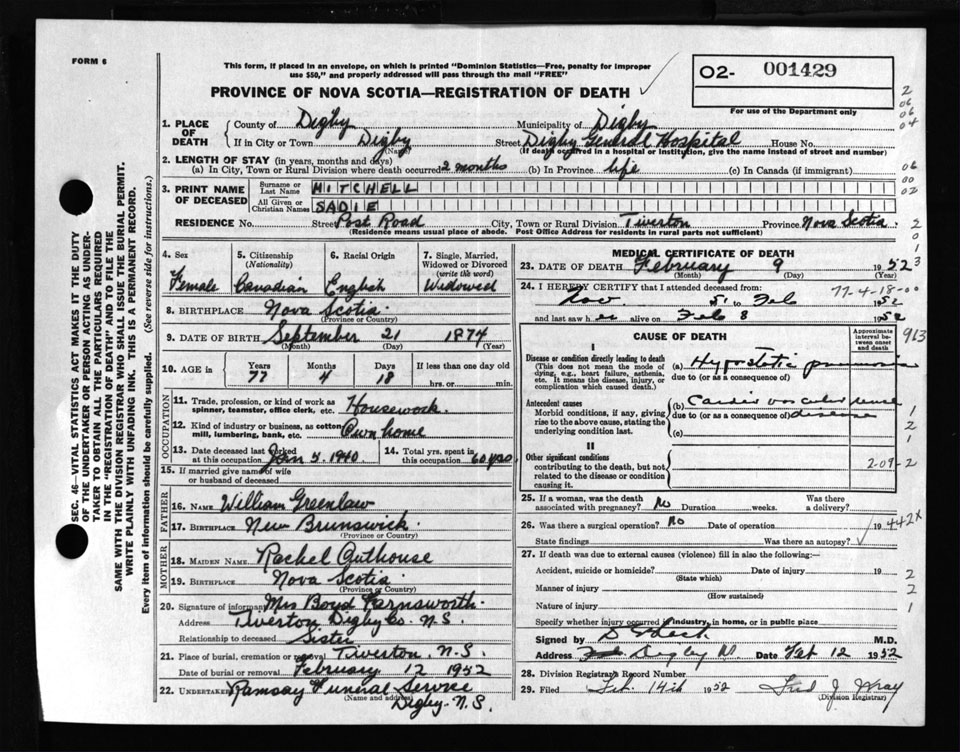 FORM 6
This form, if placed in an envelope, on which is printed "Dominion Statistics—Free, penalty for improper
use $50," and properly addressed will pass through the mail "FREE"
PROVINCE OF NOVA SCOTIA—REGISTRATION OF DEATH
O2- 001429
For use of the Department only
1. PLACE OF DEATH
County of Digby Municipality of Digby
If in City or Town Digby Street Digby General Hospital House No.
(Name) (If death occurred in a hospital or institution, give the name instead of street and number)
2. LENGTH OF STAY (in years, months and days)
(a) In City, Town or Rural Division where death occurred 2 months (b) In Province life (c) In Canada (if immigrant)
3. PRINT NAME OF DECEASED
Surname or Last Name MITCHELL
All Given or Christian Names SADIE
RESIDENCE No. Street Post Road City, Town or Rural Division Tiverton Province Nova Scotia
(Residence means usual place of abode. Post Office Address for residents in rural parts not sufficient)
4. Sex Female
5. Citizenship (Nationality) Canadian
6. Racial Origin English
7. Single, Married, Widowed or Divorced (write the word) Widowed
8. BIRTHPLACE Nova Scotia
(Province or Country)
9. DATE OF BIRTH September 21 1874
(Month) (Day) (Year)
10. AGE in Years 77 Months 4 Days 18 If less than one day hrs. or min.
OCCUPATION
11. Trade, profession, or kind of work as spinner, teamster, office clerk, etc. Housework.
12. Kind of industry or business, as cotton mill, lumbering, bank, etc. Own home
13. Date deceased last worked at this occupation Jan 5. 1940
14. Total yrs. spent in this occupation 60 yrs.
15. If married give name of wife or husband of deceased
FATHER
16. NAME William Greenlaw
17. BIRTHPLACE New Brunswick.
(Province or Country)
MOTHER
18. MAIDEN NAME Rachel Outhouse
19. BIRTHPLACE Nova Scotia.
(Province or Country)
20. Signature of informant Mrs Boyd Farnsworth.
Address Tiverton Digby Co. N.S.
Relationship to deceased Sister
21. Place of burial, cremation or removal Tiverton, N.S.
Date of burial or removal February 12 1952
22. UNDERTAKER Ramsay Funeral Service
(Name and address) Digby - N.S.
MEDICAL CERTIFICATE OF DEATH
23. DATE OF DEATH February 9 1952
(Month) (Day) (Year)
24. I HEREBY CERTIFY that I attended deceased from: 77-4-18-00
Nov 51 to Feb 1952
and last saw her alive on Feb 8 1952
CAUSE OF DEATH
Approximate interval between onset and death
913
I
Disease or condition directly leading to death
(This does not mean the mode of dying, e.g., heart failure, asthenia, etc. It means the disease, injury, or complication which caused death.)
(a) Hypostatic pneumonia
due to (or as a consequence of)
Antecedent causes
Morbid conditions, if any, giving rise to the above cause, stating the underlying condition last.
(b) Cardio vascular renal
due to (or as a consequence of) disease
(c)
II
Other significant conditions
contributing to the death, but not related to the disease or condition causing it.
2-09-2
25. If a woman, was the death associated with pregnancy? No Duration weeks. Was there a delivery?
26. Was there a surgical operation? No Date of operation 19
442X
State findings Was there an autopsy?
27. If death was due to external causes (violence) fill in also the following:—
Accident, suicide or homicide? Date of injury 19
(State which)
Manner of injury
(How sustained)
Nature of injury
Specify whether injury occurred in industry, in home, or in public place
Signed by M.D.
Address Digby NS. Date Feb 12 1952
28. Division Registrar's Record Number
29. Filed Feb. 14th 1952 Fred J. Wray
(Division Registrar)
SEC. 46—VITAL STATISTICS ACT MAKES IT THE DUTY
OF THE UNDERTAKER OR PERSON ACTING AS UNDER-
TAKER TO OBTAIN ALL THE PARTICULARS REQUIRED
IN THE "REGISTRATION OF DEATH" AND TO FILE THE
SAME WITH THE DIVISION REGISTRAR WHO SHALL ISSUE THE BURIAL PERMIT.
WRITE PLAINLY WITH UNFADING INK. THIS IS A PERMANENT RECORD.
Every item of information should be carefully supplied. (See reverse side for instructions.)
2
06
06
04
06
00
02
2
0
1
3
1
2
1
2
2
1